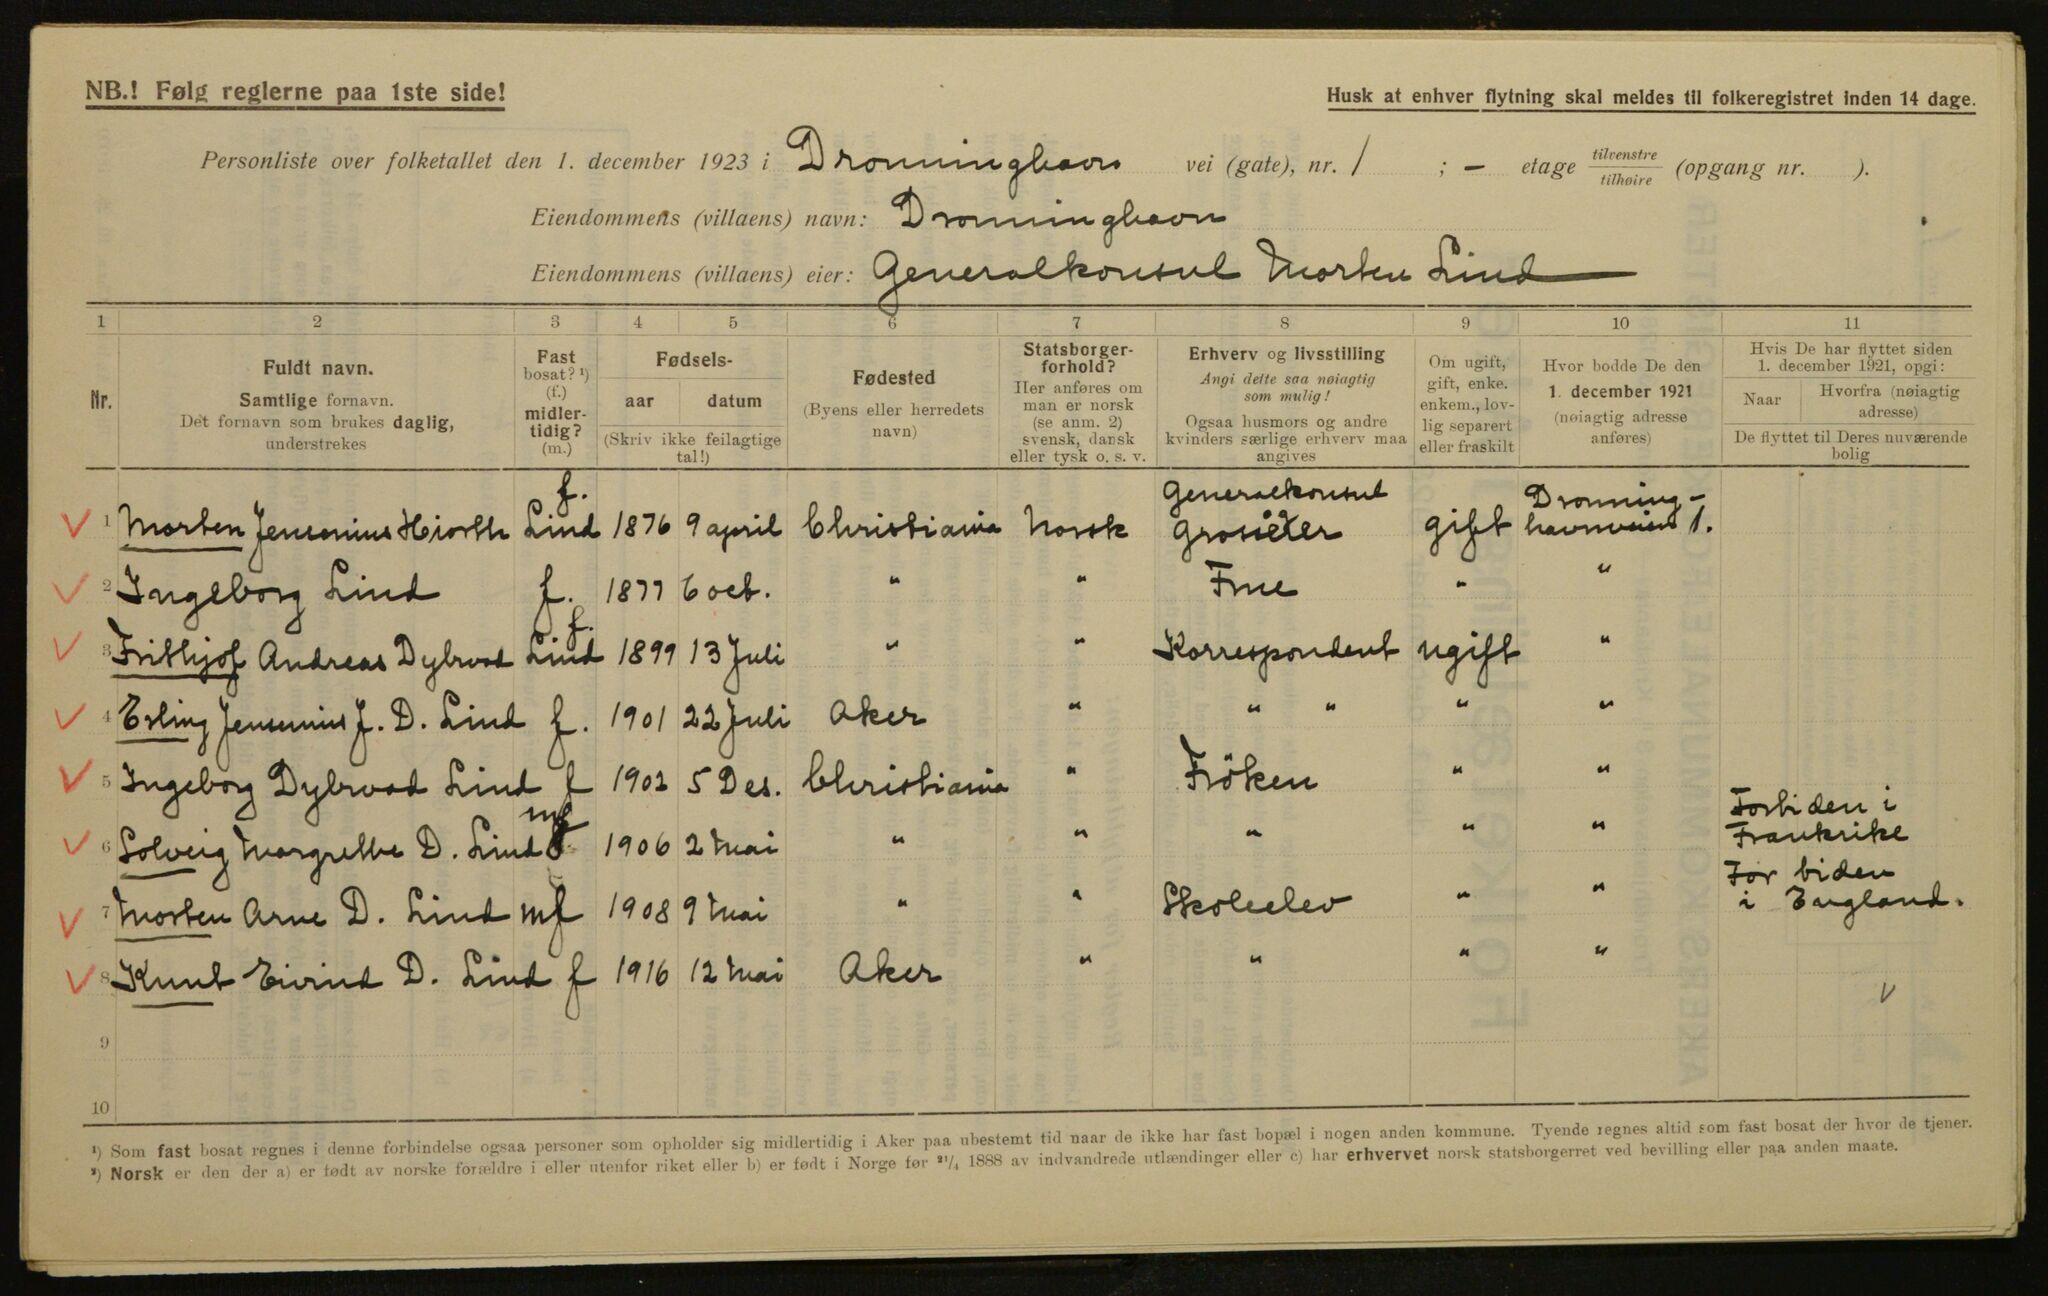 NB.! Følg reglerne paa 1ste side!
Husk at enhver flytning skal meldes til folkeregistret inden 14 dage.
Personliste over folketallet den 1. december 1923 i Dronninghavn vei (gate), nr. 1 ; - etage tilvenstre/tilhøire (opgang nr. ).
Eiendommens (villaens) navn: Dronninghavn
Eiendommens (villaens) eier: Generalkonsul Morten Lind
1 2 3 4 5 6 7 8 9 10 11
Nr.
Fuldt navn.
Samtlige fornavn.
Det fornavn som brukes daglig,
understrekes
Fast
bosat? ¹)
(f.)
midler-
tidig?
(m.)
Fødsels-
aar datum
(Skriv ikke feilagtige
tal!)
Fødested
(Byens eller herredets
navn)
Statsborger-
forhold?
Her anføres om
man er norsk
(se anm. 2)
svensk, dansk
eller tysk o. s. v.
Erhverv og livsstilling
Angi dette saa nøiagtig
som mulig!
Ogsaa husmors og andre
kvinders særlige erhverv maa
angives
Om ugift,
gift, enke.
enkem., lov-
lig separert
eller fraskilt
Hvor bodde De den
1. december 1921
(nøiagtig adresse
anføres)
Hvis De har flyttet siden
1. december 1921, opgi:
Naar
Hvorfra (nøiagtig
adresse)
De flyttet til Deres nuværende
bolig
f. Generalkonsul Dronning-
1 Morten Jensenius Hiorth Lind 1876 9 april Christiania Norsk Grosserer gift havnveien 1.
2 Ingeborg Lind f. 1877 6 oct. " " Frue " "
f.
3 Frithjof Andreas Dybwad Lind 1899 13 Juli " " Korrespondent ugift "
4 Erling Jensenius J. D. Lind f. 1901 22 Juli Aker " " " " "
5 Ingeborg Dybwad Lind f 1902 5 Des. Christiania " Fröken " "
mf Forbiden i
6 Solveig Margrethe D. Lind 1906 2 Mai " " " " " Frankrike
For tiden
7 Morten Arne D. Lind mf 1908 9 Mai " " Skoleelev " " i England.
8 Knut Eivind D. Lind f 1916 12 Mai Aker " " " "
9
10
¹) Som fast bosat regnes i denne forbindelse ogsaa personer som opholder sig midlertidig i Aker paa ubestemt tid naar de ikke har fast bopæl i nogen anden kommune. Tyende regnes altid som fast bosat der hvor de tjener.
²) Norsk er den der a) er født av norske forældre i eller utenfor riket eller b) er født i Norge før 21/4 1888 av indvandrede utlændinger eller c) har erhvervet norsk statsborgerret ved bevilling eller paa anden maate.